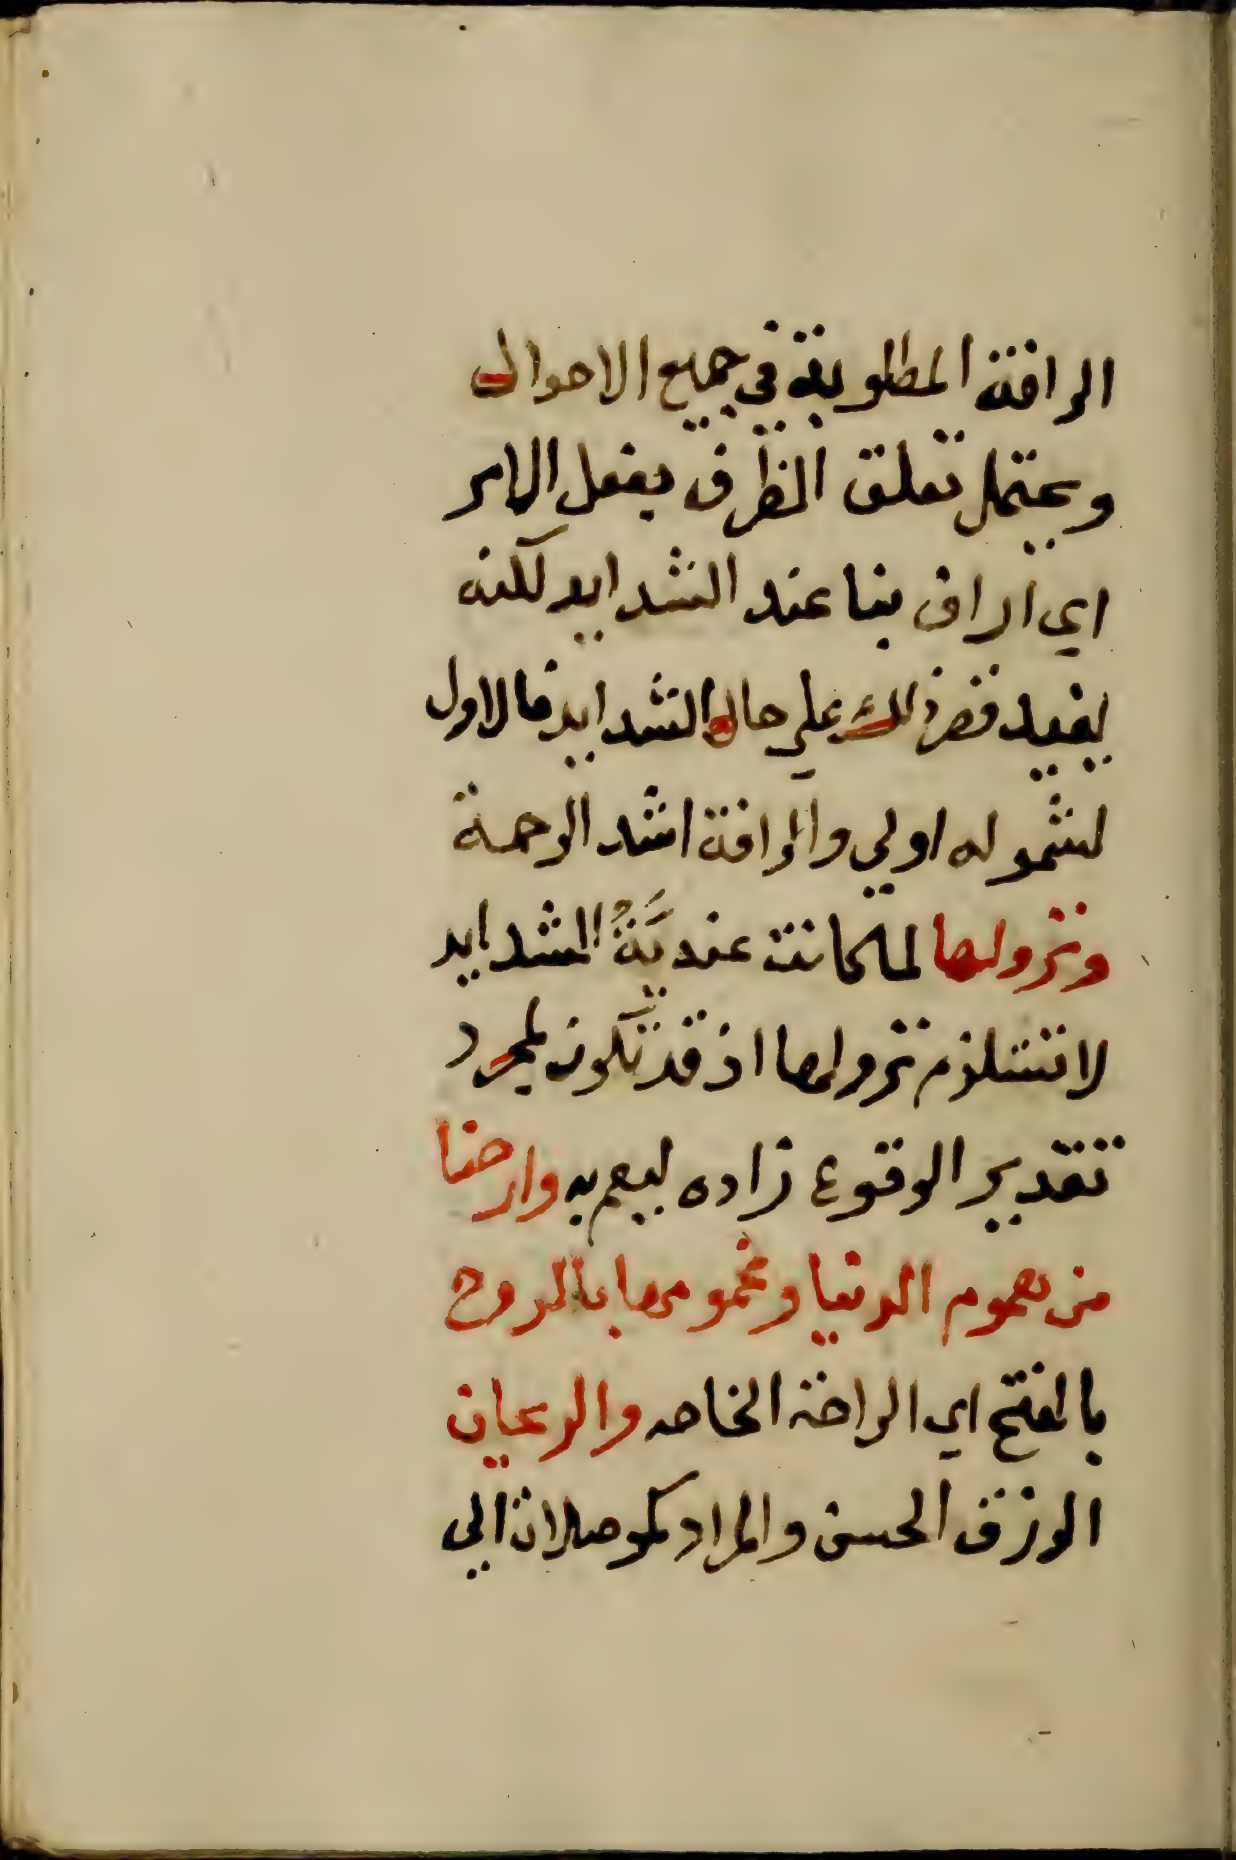 الرافة المطلوبة في جميع الاحوال
ويحتمل تعلق الظرف بفعل الامر
اي اراف بنا عند الشدايد لكنه
يفيد قصر ذلك علي حال الشدايد فالاول
لشموله اولي والرافة اشد الرحمة
ونزولها لما كانت عنديَّةُ الشدايد
لا تستلزم نزولها اذ قد تكون بمجرد
تقدير الوقوع زاده ليعم به وارحنا
من هموم الدنيا وغمومها بالروح
بالفتح اي الراحة الخاصه والريحان
الرزق الحسن والمراد كموصلان الي